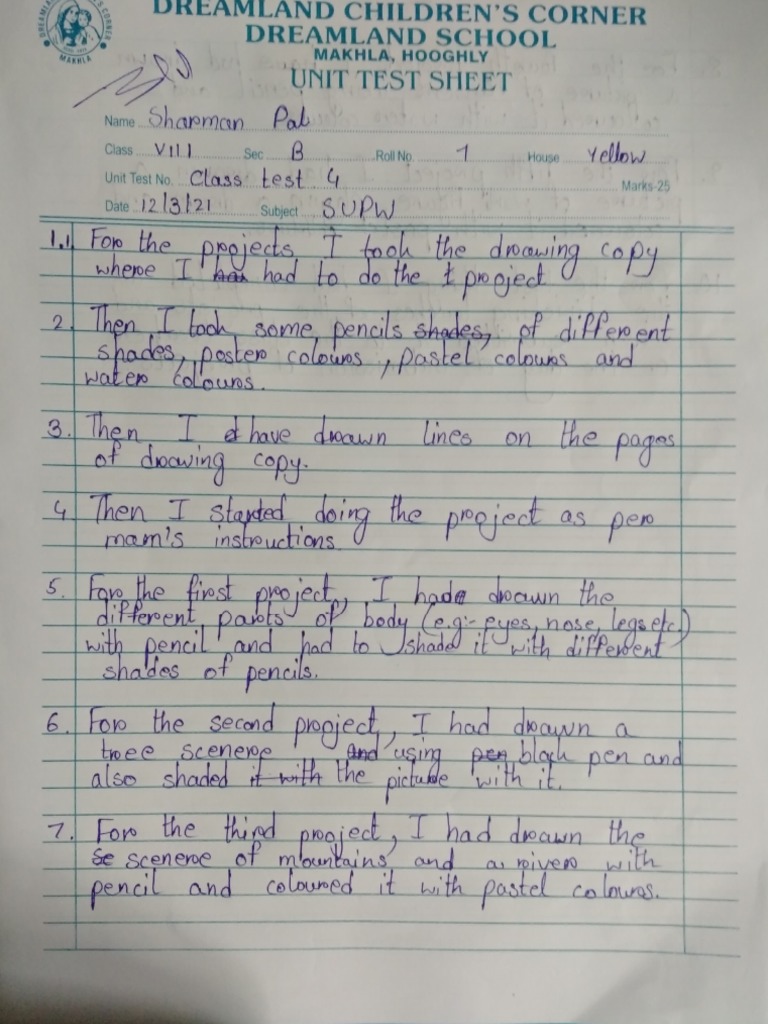 DREAMLAND CHILDREN'S CORNER
DREAMLAND SCHOOL
MAKHLA, HOOGHLY
UNIT TEST SHEET
Name Sharman Pal
Class VIII Sec B Roll No. 1 House Yellow
Unit Test No. Class test 4 Marks-25
Date 12/3/21 Subject SUPW
1.1 For the projects I took the drawing copy
where I had to do the project
2. Then I took some pencils shades, of different
shades, poster colours, pastel colours and
water colours.
3. Then I have drawn lines on the pages
of drawing copy.
4 Then I started doing the project as per
mam's instructions
5. For the first project, I had drawn the
different parts of body (e.g:- eyes, nose, legs etc.)
with pencil and had to shade it with different
shades of pencils.
6. For the second project, I had drawn a
tree scenere using black pen and
also shaded the picture with it.
7. For the third project, I had drawn the
scenere of mountains and a river with
pencil and coloured it with pastel colours.